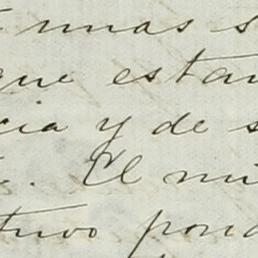 unas s
que estan
cia y de s
. El mi
tuvo pond